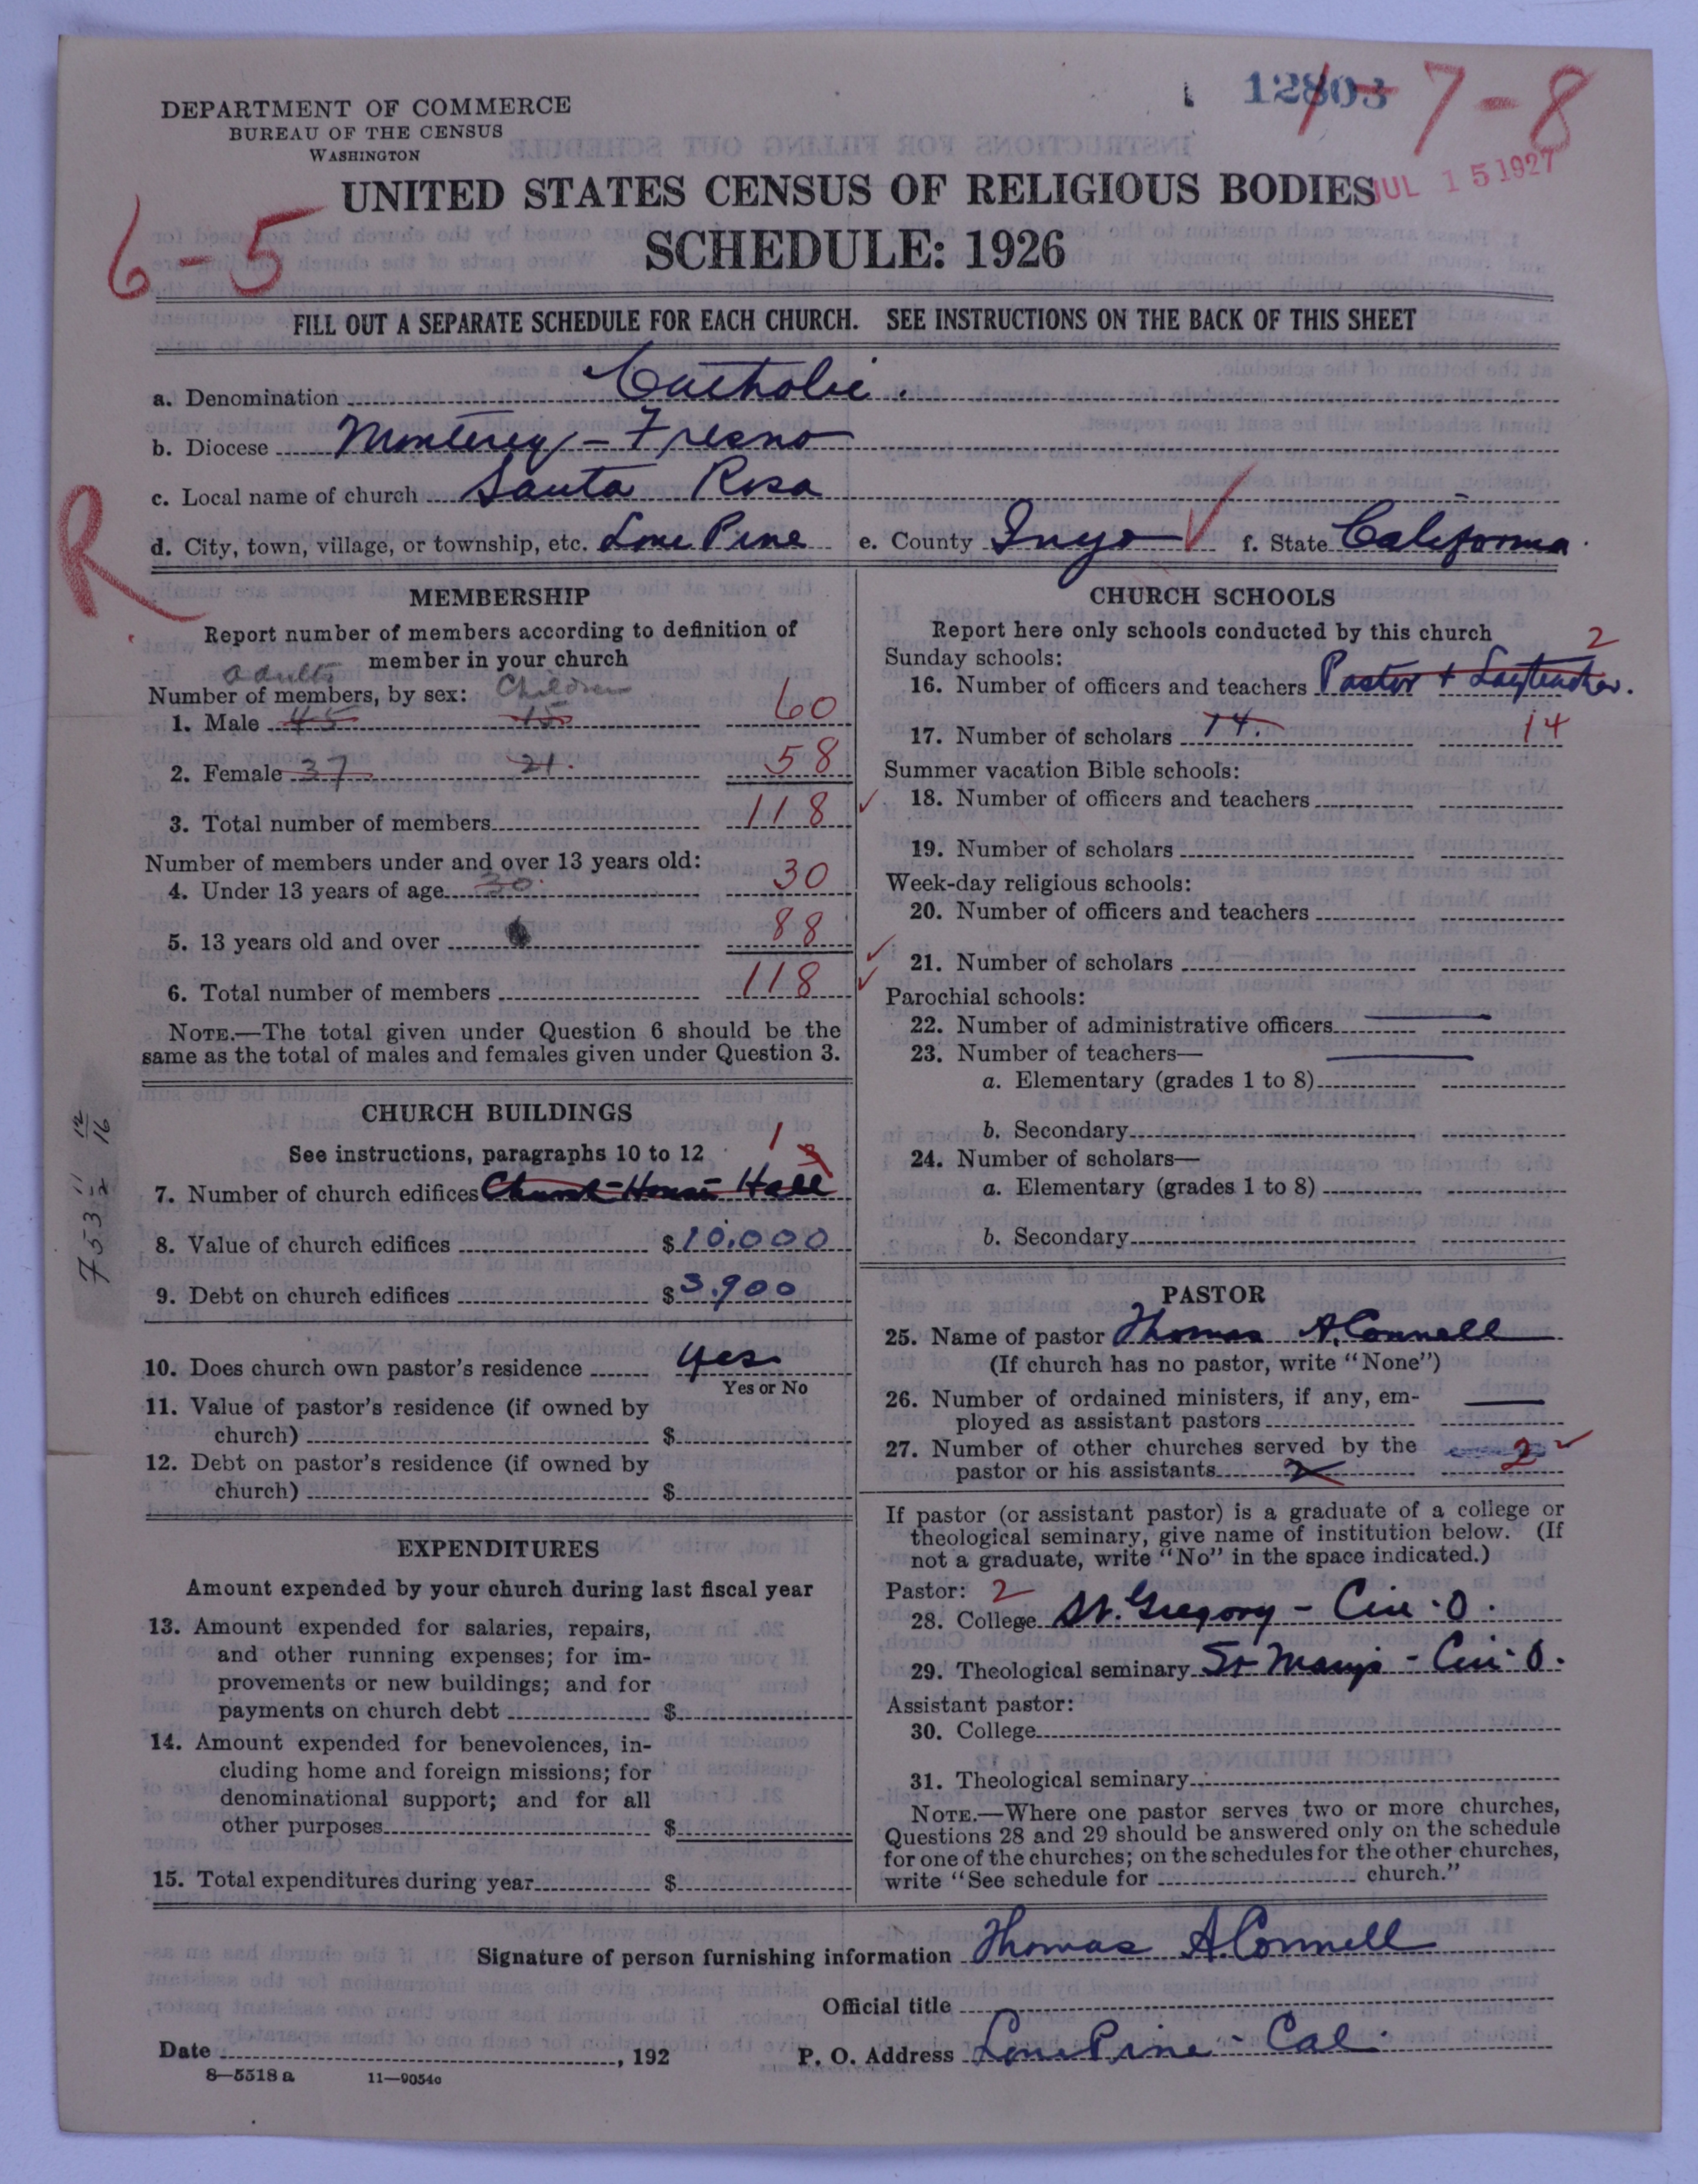 12803
7-8
DEPARTMENT OF COMMERCE
BUREAU OF THE CENSUS
WASHINGTON
JUL 15 1927
UNITED STATES CENSUS OF RELIGIOUS BODIES
SCHEDULE: 1926
6-5
FILL OUT A SEPARATE SCHEDULE FOR EACH CHURCH. SEE INSTRUCTIONS ON THE BACK OF THIS SHEET
a. Denomination Catholic.
b. Diocese Monterey-Fresno
c. Local name of church Santa Rosa
R
d. City, town, village, or township, etc. Lone Pine e. County Inyo f. State California
MEMBERSHIP
Report number of members according to definition of
member in your church
adults Children
Number of members, by sex:
1. Male 45 15 60
2. Female 37 21. 58
3. Total number of members 118
Number of members under and over 13 years old:
4. Under 13 years of age 30. 30
5. 13 years old and over 88
6. Total number of members 118
NOTE.—The total given under Question 6 should be the
same as the total of males and females given under Question 3.
CHURCH BUILDINGS
See instructions, paragraphs 10 to 12
1 3
7. Number of church edifices Church-House Hall
8. Value of church edifices $10,000
9. Debt on church edifices $3,900
10. Does church own pastor's residence yes
Yes or No
11. Value of pastor's residence (if owned by
church) $
12. Debt on pastor's residence (if owned by
church) $
EXPENDITURES
Amount expended by your church during last fiscal year
13. Amount expended for salaries, repairs,
and other running expenses; for im-
provements or new buildings; and for
payments on church debt $
14. Amount expended for benevolences, in-
cluding home and foreign missions; for
denominational support; and for all
other purposes $
15. Total expenditures during year $
CHURCH SCHOOLS
Report here only schools conducted by this church
Sunday schools: 2
16. Number of officers and teachers Pastor + Layteacher.
17. Number of scholars 14. 14
Summer vacation Bible schools:
18. Number of officers and teachers
19. Number of scholars
Week-day religious schools:
20. Number of officers and teachers
21. Number of scholars
Parochial schools:
22. Number of administrative officers
23. Number of teachers—
a. Elementary (grades 1 to 8)
b. Secondary
24. Number of scholars—
a. Elementary (grades 1 to 8)
b. Secondary
PASTOR
25. Name of pastor Thomas A. Connell
(If church has no pastor, write "None")
26. Number of ordained ministers, if any, em-
ployed as assistant pastors
27. Number of other churches served by the
pastor or his assistants 2 2
If pastor (or assistant pastor) is a graduate of a college or
theological seminary, give name of institution below. (If
not a graduate, write "No" in the space indicated.)
Pastor: 2
28. College St. Gregory - Cin. O.
29. Theological seminary St Marys - Cin. O.
Assistant pastor:
30. College
31. Theological seminary
NOTE.—Where one pastor serves two or more churches,
Questions 28 and 29 should be answered only on the schedule
for one of the churches; on the schedules for the other churches,
write "See schedule for church."
Signature of person furnishing information Thomas A. Connell
Official title
Date , 192 P. O. Address Lone Pine - Cal.
8—5518 a 11—9054c